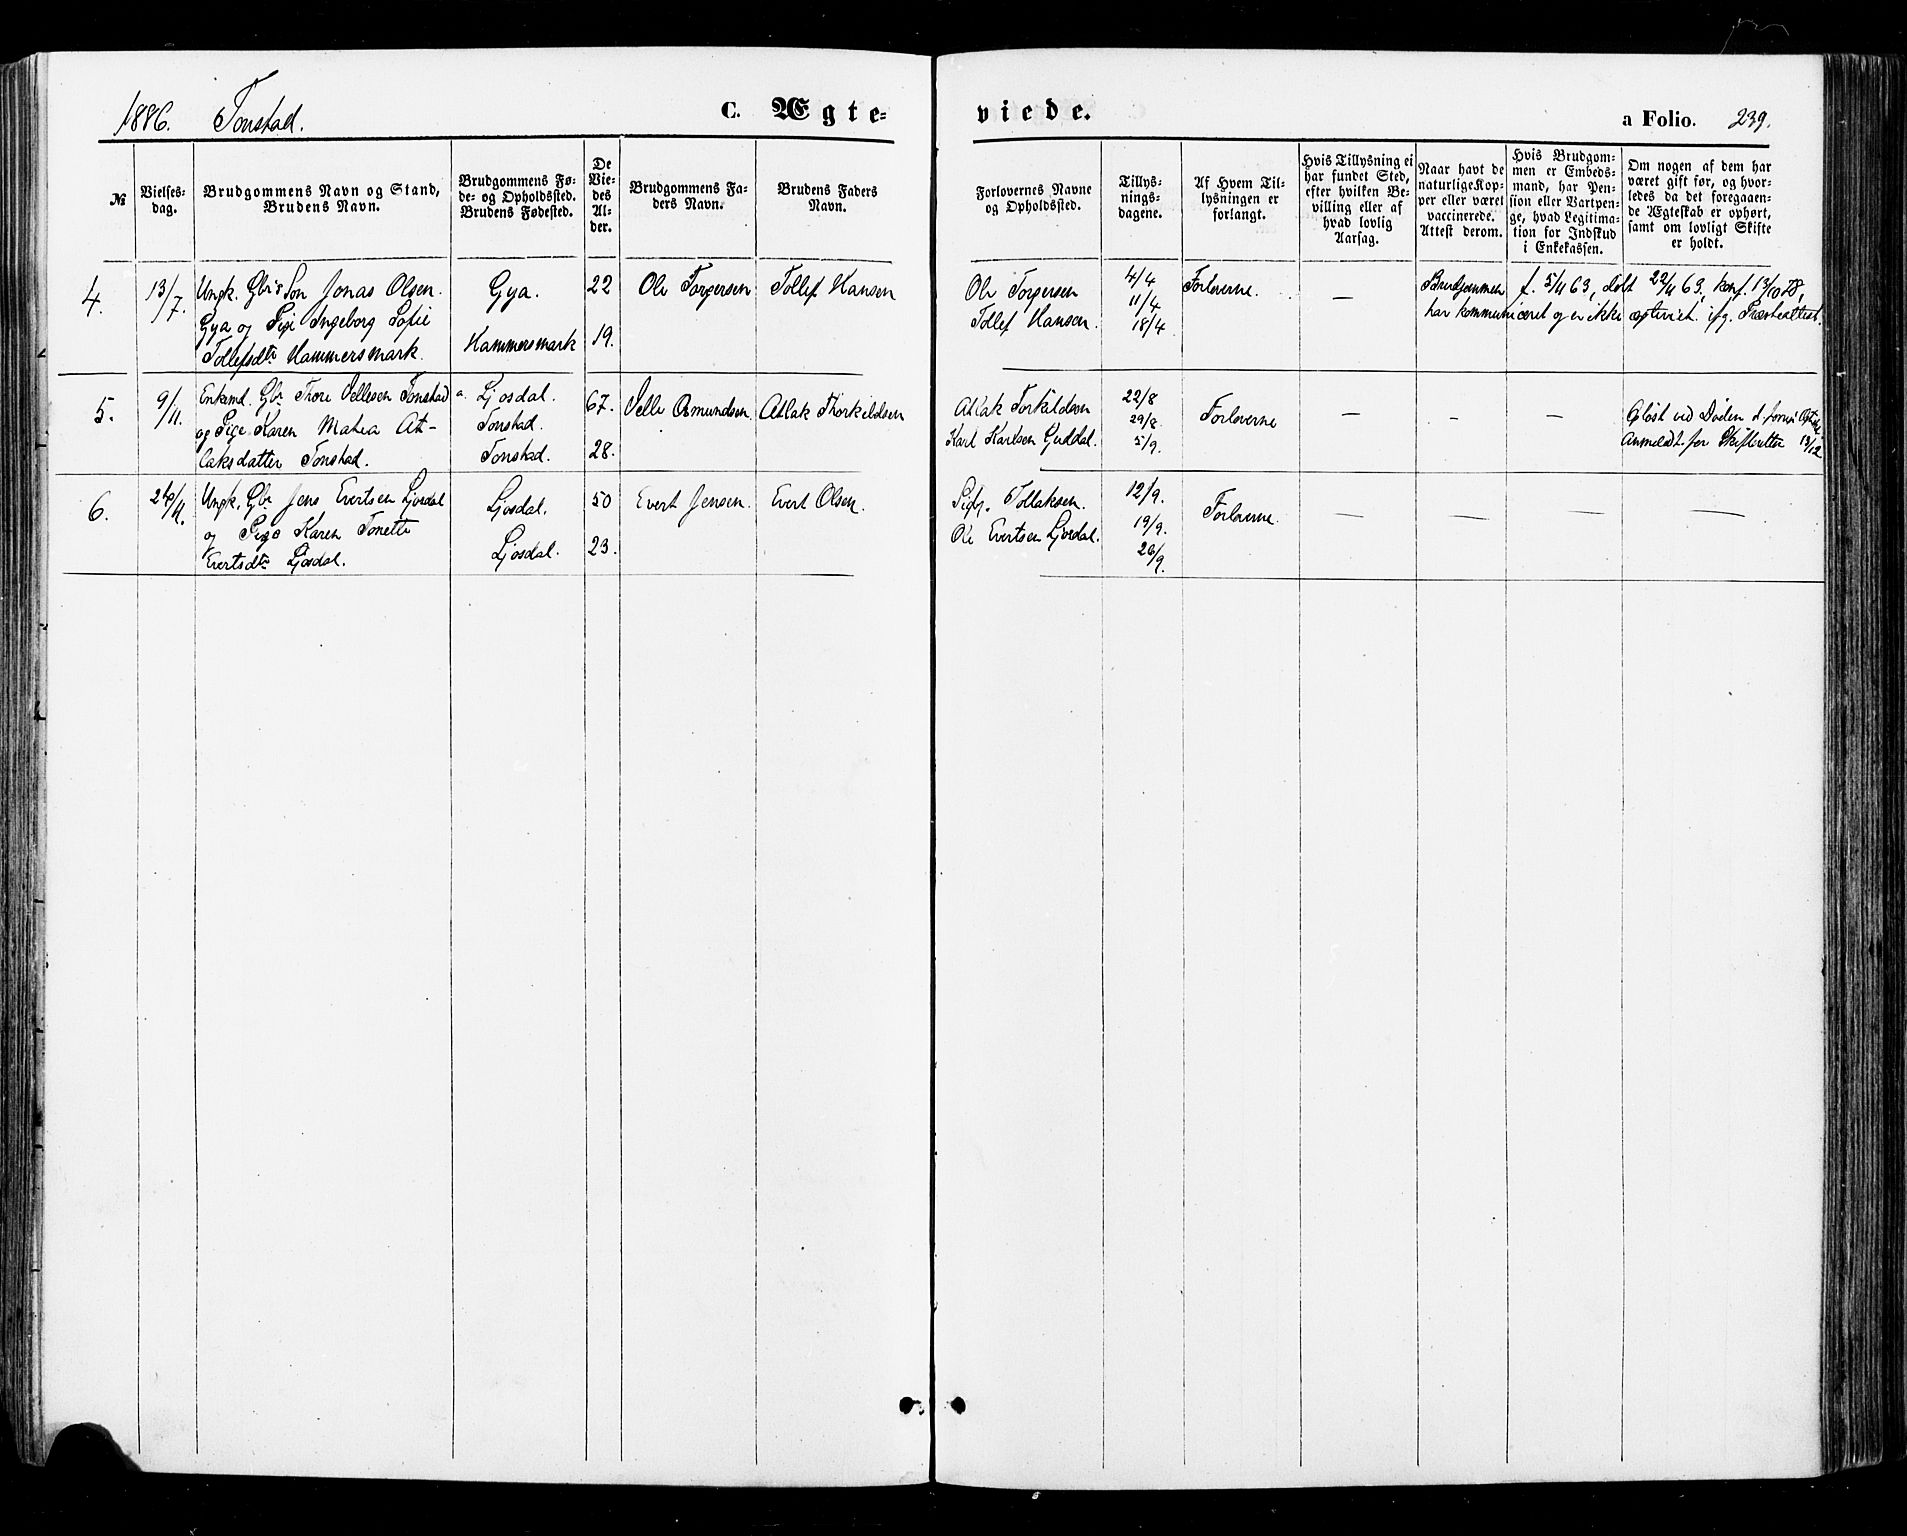 1886. Tonstad. C. Ægte- viede. a Folio. 239.
№
Vielses-
dag.
Brudgommens Navn og Stand,
Brudens Navn.
Brudgommens Fø-
de- og Opholdssted.
Brudens Fødested.
De
Vie-
des
Al-
der.
Brudgommens Fa-
ders Navn.
Brudens Faders
Navn.
Forlovernes Navne
og Opholdssted.
Tillys-
nings-
dagene.
Af Hvem Til-
lysningen er
forlangt.
Hvis Tillysning ei
har fundet Sted,
efter hvilken Be-
villing eller af
hvad lovlig
Aarsag.
Naar havt de
naturlige Kop-
per eller været
vaccinerede.
Attest derom.
Hvis Brudgom-
men er Embeds-
mand, har Pen-
sion eller Vartpen-
ge, hvad Legitima-
tion for Indskud
i Enkekassen.
Om nogen af dem har
været gift før, og hvor-
ledes da det foregaaen-
de Ægteskab er ophørt,
samt om lovligt Skifte
er holdt.
4.
13/7.
Ungk. Gbr's Søn Jonas Olsen
Gya og Pige Ingeborg Sofie
Tollefsdtr Hammersmark.
Gya.
Hammersmark
22
19.
Ole Torgersen
Tollef Hansen
Ole Torgersen
Tollef Hansen.
4/4
11/4
18/4
Forloverne.
—
Brudgommen f. 5/11 63, døbt 22/11 63, konf. 13/10 78,
har kommuniceret og er ikke ægteviet. ifg. Præsteattest.
5.
9/11.
Enkemd. Gbr Thore Vellesen Tonstad
og Pige Karen Matea At-
laksdatter Tonstad.
a. Ljosdal.
Tonstad.
Tonstad.
67.
28.
Velle Osmundsen.
Atlak Thorkildsen
Atlak Torkildsen
Karl Karlsen Guddal.
22/8
29/8.
5/9.
Forloverne
—
—
—
Opløst ved Døden
Anmeldt for Skifteretten 13/12
6.
Ungk. Gbr Jens Evertsen Ljosdal
og Pige Karen Tonette
Evertsdtr Ljosdal.
Ljosdal.
Ljosdal.
50
23.
Evert Jensen.
Evert Olsen.
Tollaksen.
Ole Evertsen Ljosdal.
12/9.
19/9.
26/9.
Forloverne.
—
—
—
—